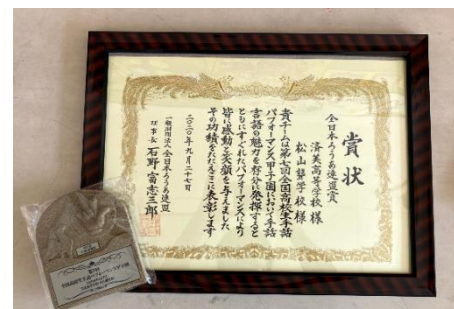 賞状
全日本ろうあ連盟賞
済美高等学校 様
松山聾学校 様
貴チームは第七回全国高校生手話
パフォーマンス甲子園において手話
言語の魅力を存分に発揮すると
ともにすぐれたパフォーマンスにより
皆に感動と笑顔を与えました
その功績をたたえここに表彰します
二〇二〇年九月二十七日
一般財団法人全日本ろうあ連盟
理事長 石野富志三郎